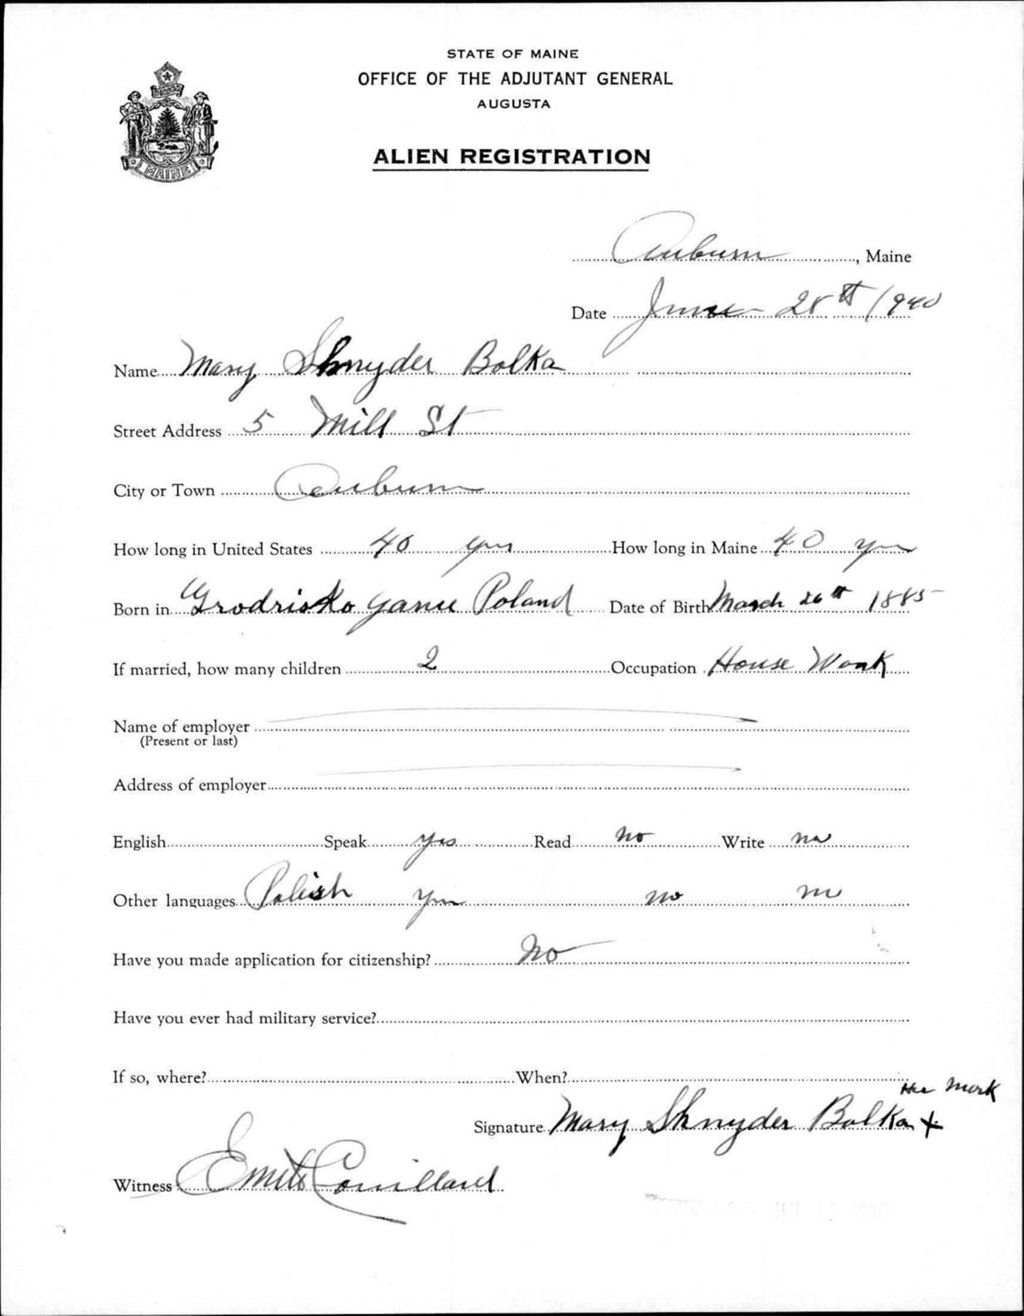 STATE OF MAINE
OFFICE OF THE ADJUTANT GENERAL
AUGUSTA
ALIEN REGISTRATION
MAINE
Auburn, Maine
Date June 28th 1940
Name Mary Shnyder Bolka
Street Address 5 Mill St
City or Town Auburn
How long in United States 40 yrs How long in Maine 40 yrs
Born in Grodrisko Poland Date of Birth March 26th 1885
If married, how many children 2 Occupation House Work
Name of employer
(Present or last)
Address of employer
English Speak yes Read no Write no
Other languages Polish yes no no
Have you made application for citizenship? No
Have you ever had military service?
If so, where? When?
Her Mark
Signature Mary Shnyder Bolka X
Witness Couillard